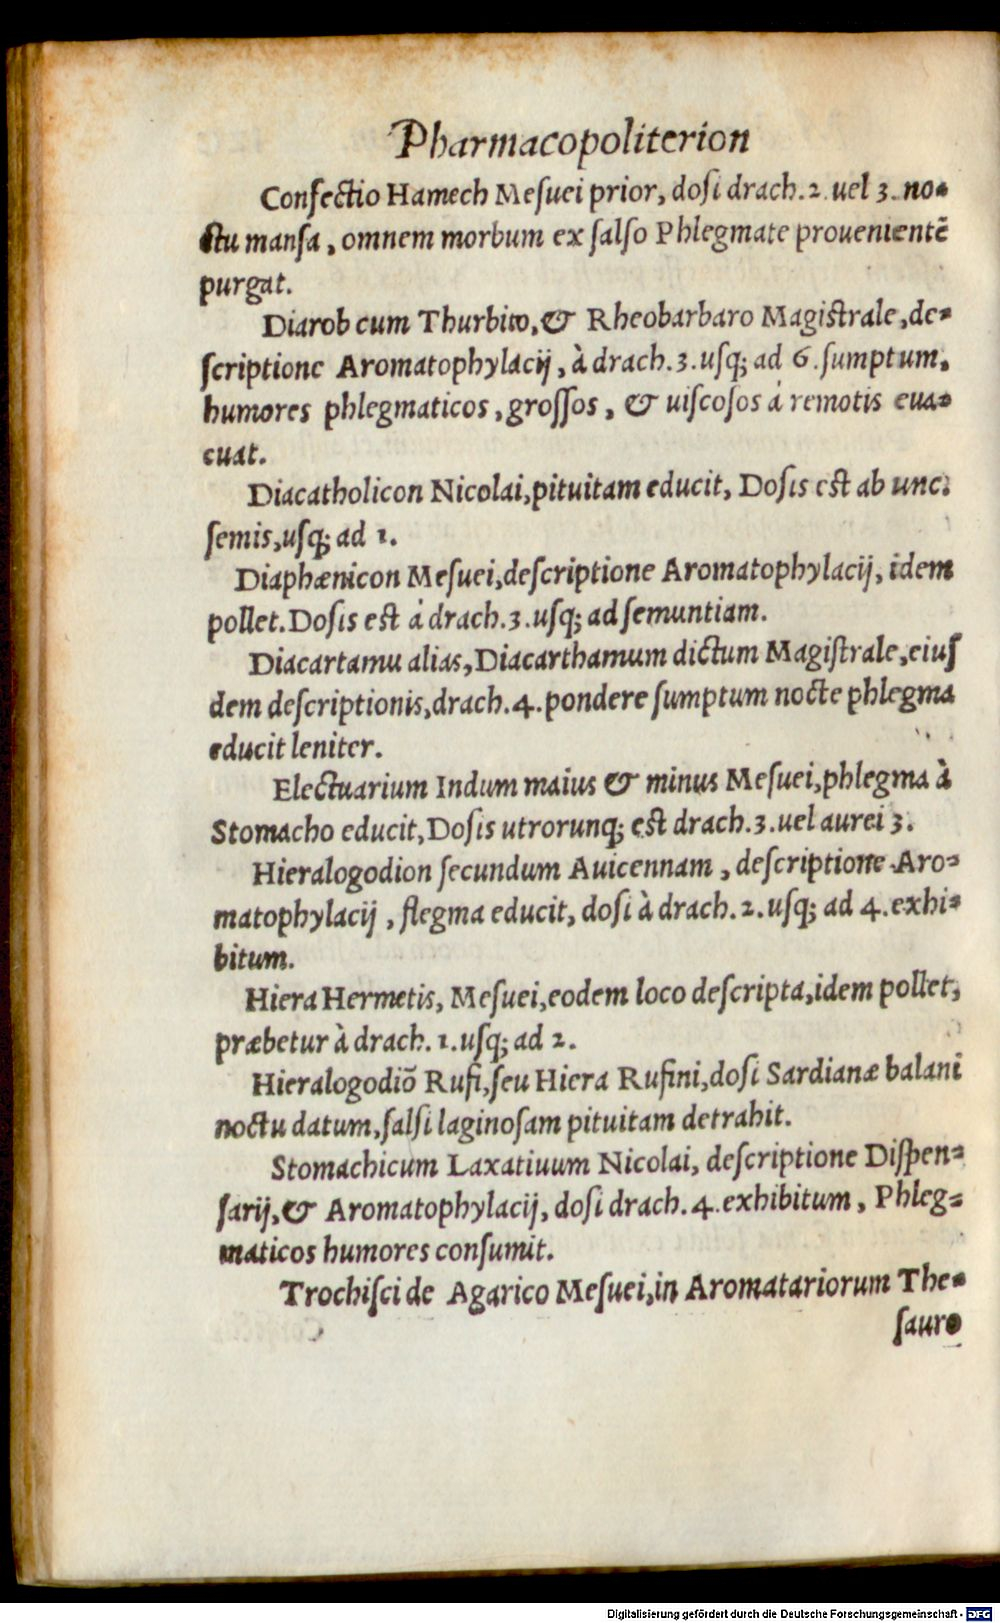 Pharmacopoliterion
Confectio Hamech Mesuei prior, dosi drach. 2. uel 3. no-
ctu mansa, omnem morbum ex salso Phlegmate prouenientē
purgat.
Diarob cum Thurbito, & Rheobarbaro Magistrale, de-
scriptione Aromatophylacij, à drach. 3. usq; ad 6. sumptum,
humores phlegmaticos, grossos, & uiscosos à remotis eua-
cuat.
Diacatholicon Nicolai, pituitam educit, Dosis est ab unc.
semis, usq; ad 1.
Diaphænicon Mesuei, descriptione Aromatophylacij, idem
pollet. Dosis est à drach. 3. usq; ad semuntiam.
Diacartamu alias, Diacarthamum dictum Magistrale, eius
dem descriptionis, drach. 4. pondere sumptum nocte phlegma
educit leniter.
Electuarium Indum maius & minus Mesuei, phlegma à
Stomacho educit, Dosis utrorunq; est drach. 3. uel aurei 3.
Hieralogodion secundum Auicennam, descriptione Aro-
matophylacij, flegma educit, dosi à drach. 2. usq; ad 4. exhi-
bitum.
Hiera Hermetis, Mesuei, eodem loco descripta, idem pollet,
præbetur à drach. 1. usq; ad 2.
Hieralogodiō Rufi, seu Hiera Rufini, dosi Sardianæ balani
noctu datum, salsilaginosam pituitam detrahit.
Stomachicum Laxatiuum Nicolai, descriptione Dispen-
sarij, & Aromatophylacij, dosi drach. 4. exhibitum, Phleg-
maticos humores consumit.
Trochisci de Agarico Mesuei, in Aromatariorum The-
sauro
Digitalisierung gefördert durch die Deutsche Forschungsgemeinschaft - DFG